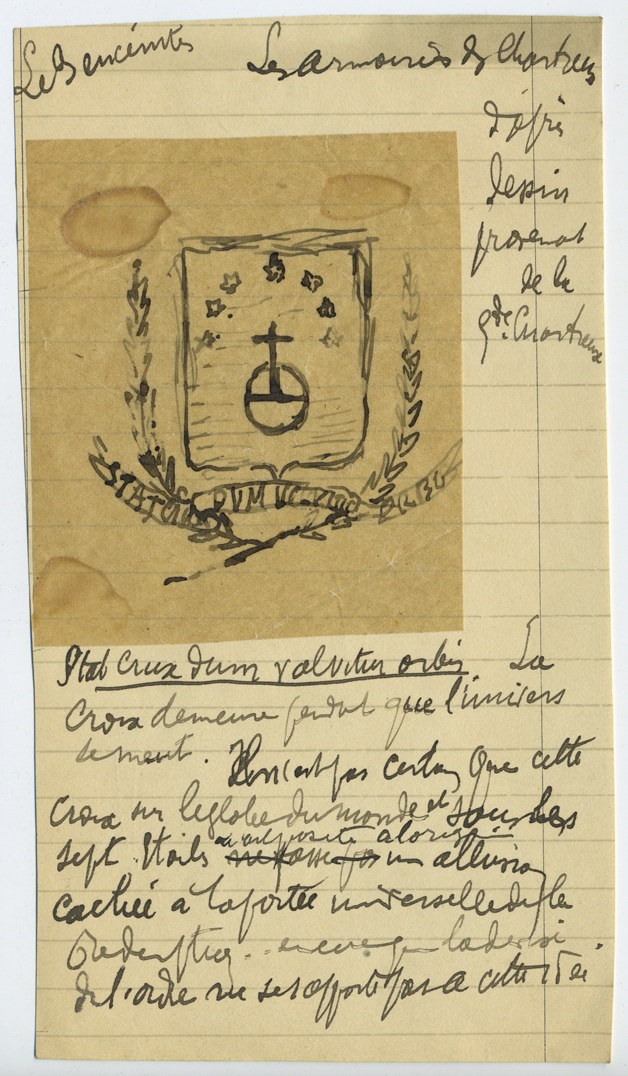 Les enceintes
Les armoiries des Chartreux
d'après
dessin
provenant
de la
gde. Chartreuse
STAT CRUX DUM VOLVITUR ORBIS
Stat crux dum volvitur orbis La
Croix demeure pendant que l'univers
se meut. Il n'est pas certain que cette
croix sur le globe du monde et sous les
sept Etoiles
ait à l'origine
un allusion
cachée à la portée universelle de la
Redemption. encore que la devise
de l'ordre ne se rapporte pas à cette idée